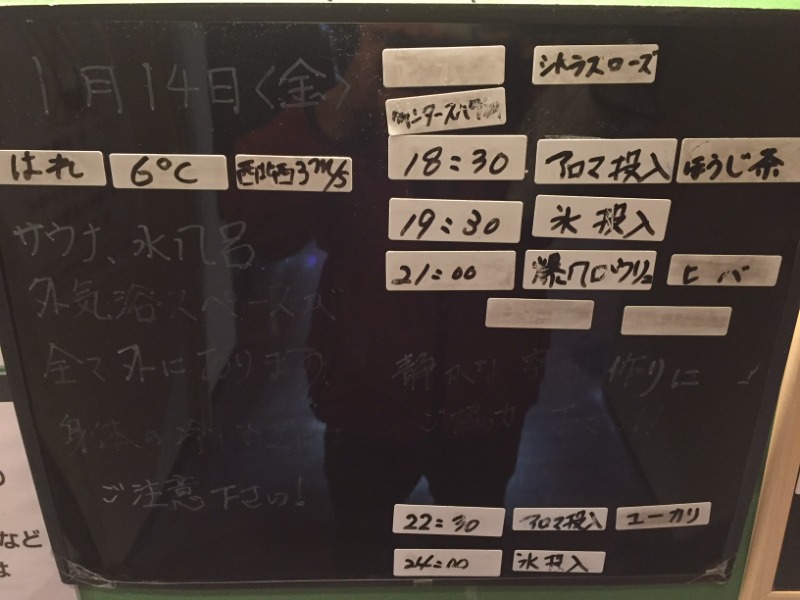 1月14日〈金〉
はれ 6℃ 西北西3m/s
サウナ、水風呂、
外気浴スペースが
全て外にあります。
身体の冷
ご注意下さい!
シトラスローズ
18:30 アロマ投入 ほうじ茶
19:30 氷投入
21:00 ヒバ
静かな 作りに
ご協力 下さい!!
22:30 アロマ投入 ユーカリ
24:00 氷投入
など